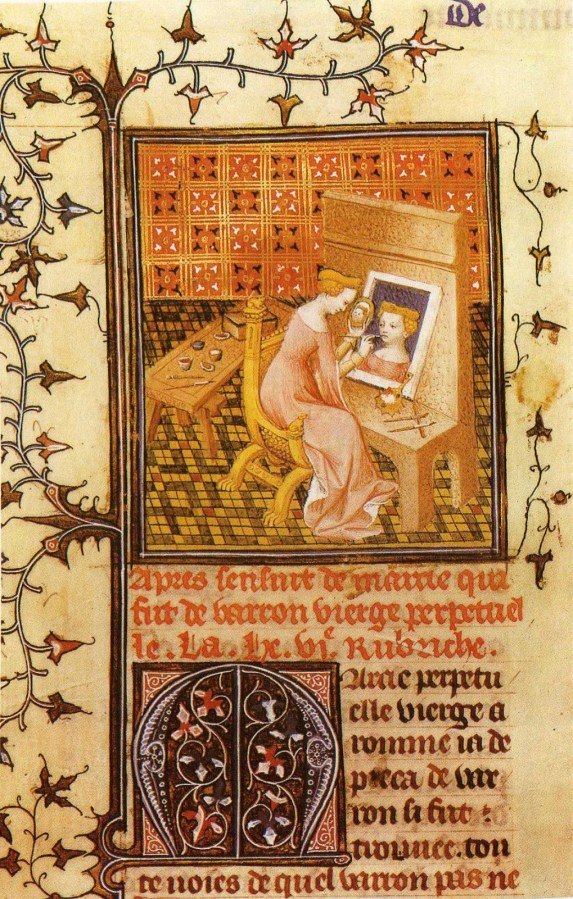 De
Apres sensuit de marcie qui
fut de varron vierge perpetuel
le . La . lx . vi^e . Rubriche .
Marcie perpetu
elle vierge a
romme ia de
pieca de var
ron si fut :
trouuee . tou
te uoies de quel varron pas ne